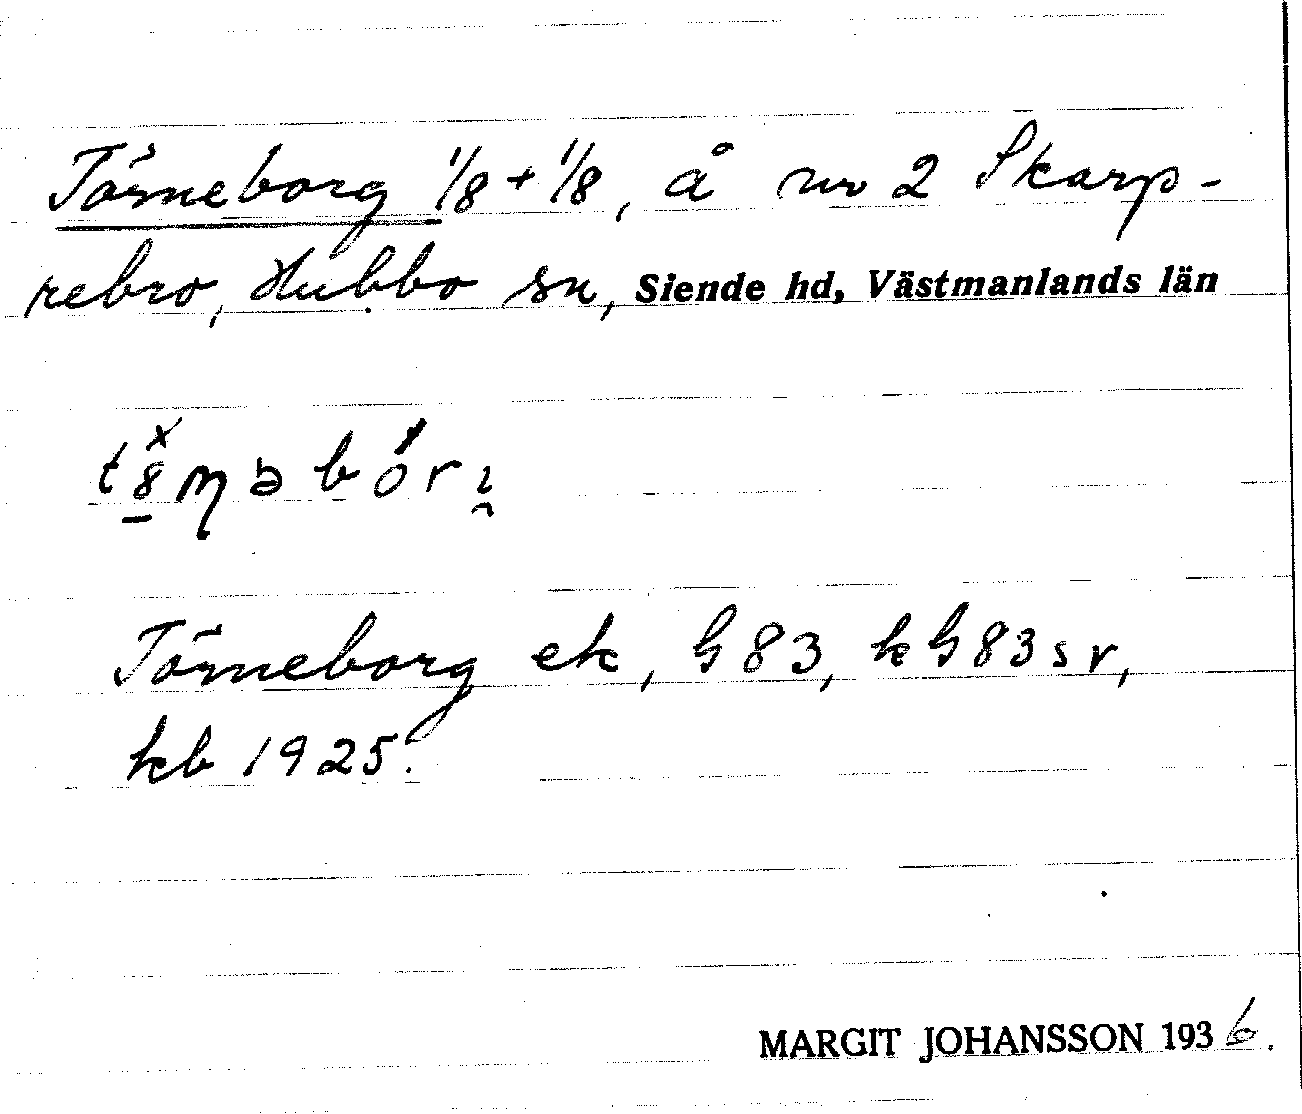 Törneborg 1/8 + 1/8, å nr 2 Skarp-
rebro, Hubbo sn, Siende hd, Västmanlands län
Törneborg ek, h 83, k h 83 s v,
kb 1925.
MARGIT JOHANSSON 1936.